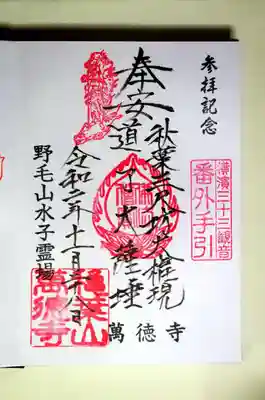 参拝記念
横濱三十三観音
番外手引
秋葉三尺坊大権現
奉安
道了大薩埵
令和二年十一月二十八日
野毛山水子霊場
萬徳寺